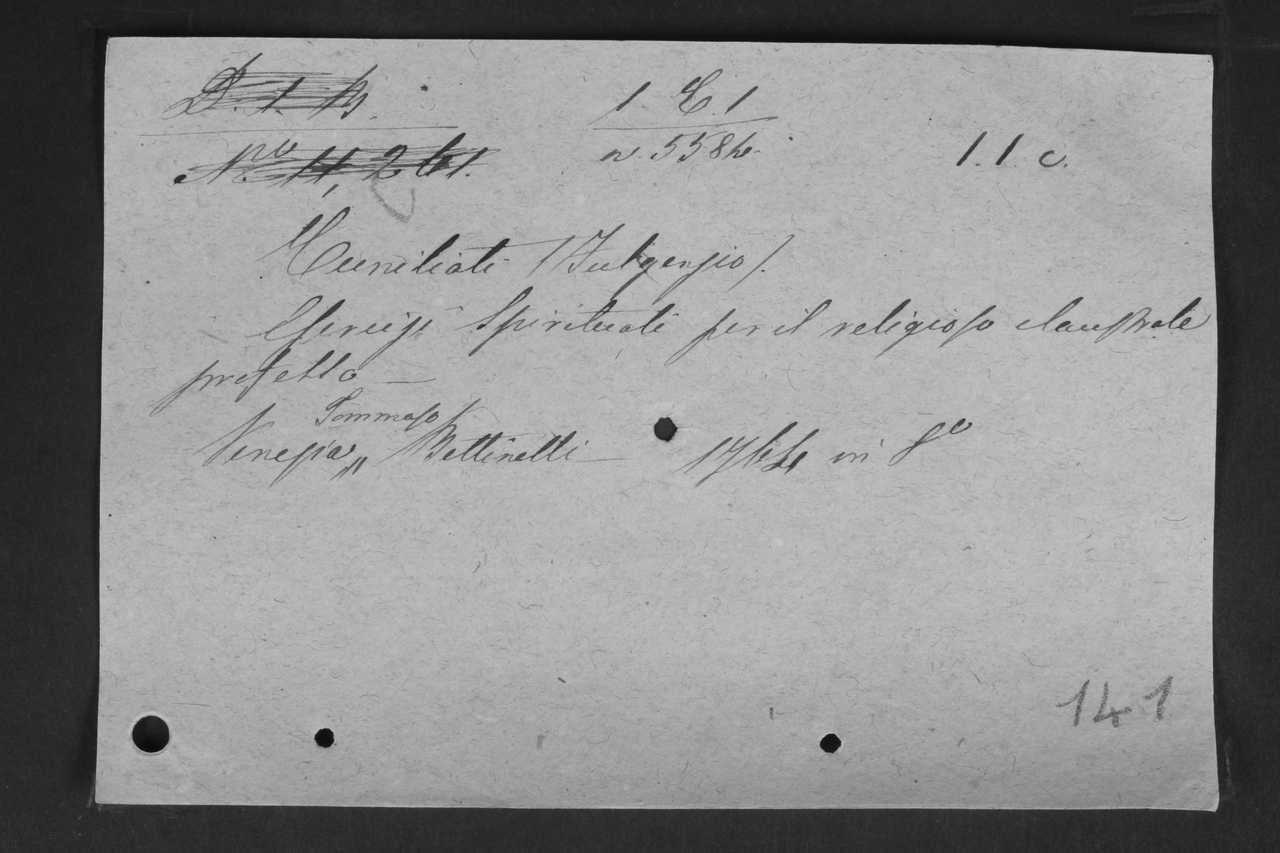 D. 1. B.
1. E. 1
Nro 11,261.
n. 5584.
1. 1 c.
Cuniliati (Fulgenzio).
Esercizi Spirituali per il religioso claustrale
professo —
Tommaso
Venezia „ Bettinelli — 1764 in 8o
141